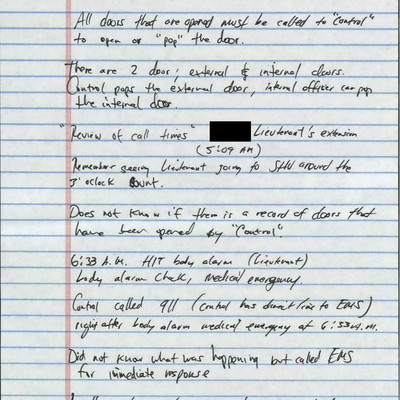 All doors that are opened must be called to "Control"
to open or "pop" the door.
There are 2 door; external & internal doors.
Control pops the external door, internal officer can pop
the internal door.
"Review of call times" Lieutenant's extension
(5:09 AM)
Remember seeing Lieutenant going to SHU around the
3 o'clock count.
Does not know if there is a record of doors that
have been opened by "Control".
6:33 A.M. HIT body alarm (Lieutenant)
body alarm check, medical emergency.
Control called 911 (Control has direct line to EMS)
right after body alarm medical emergency at 6:33 A.M.
Did not know what was happening but called EMS
for immediate response